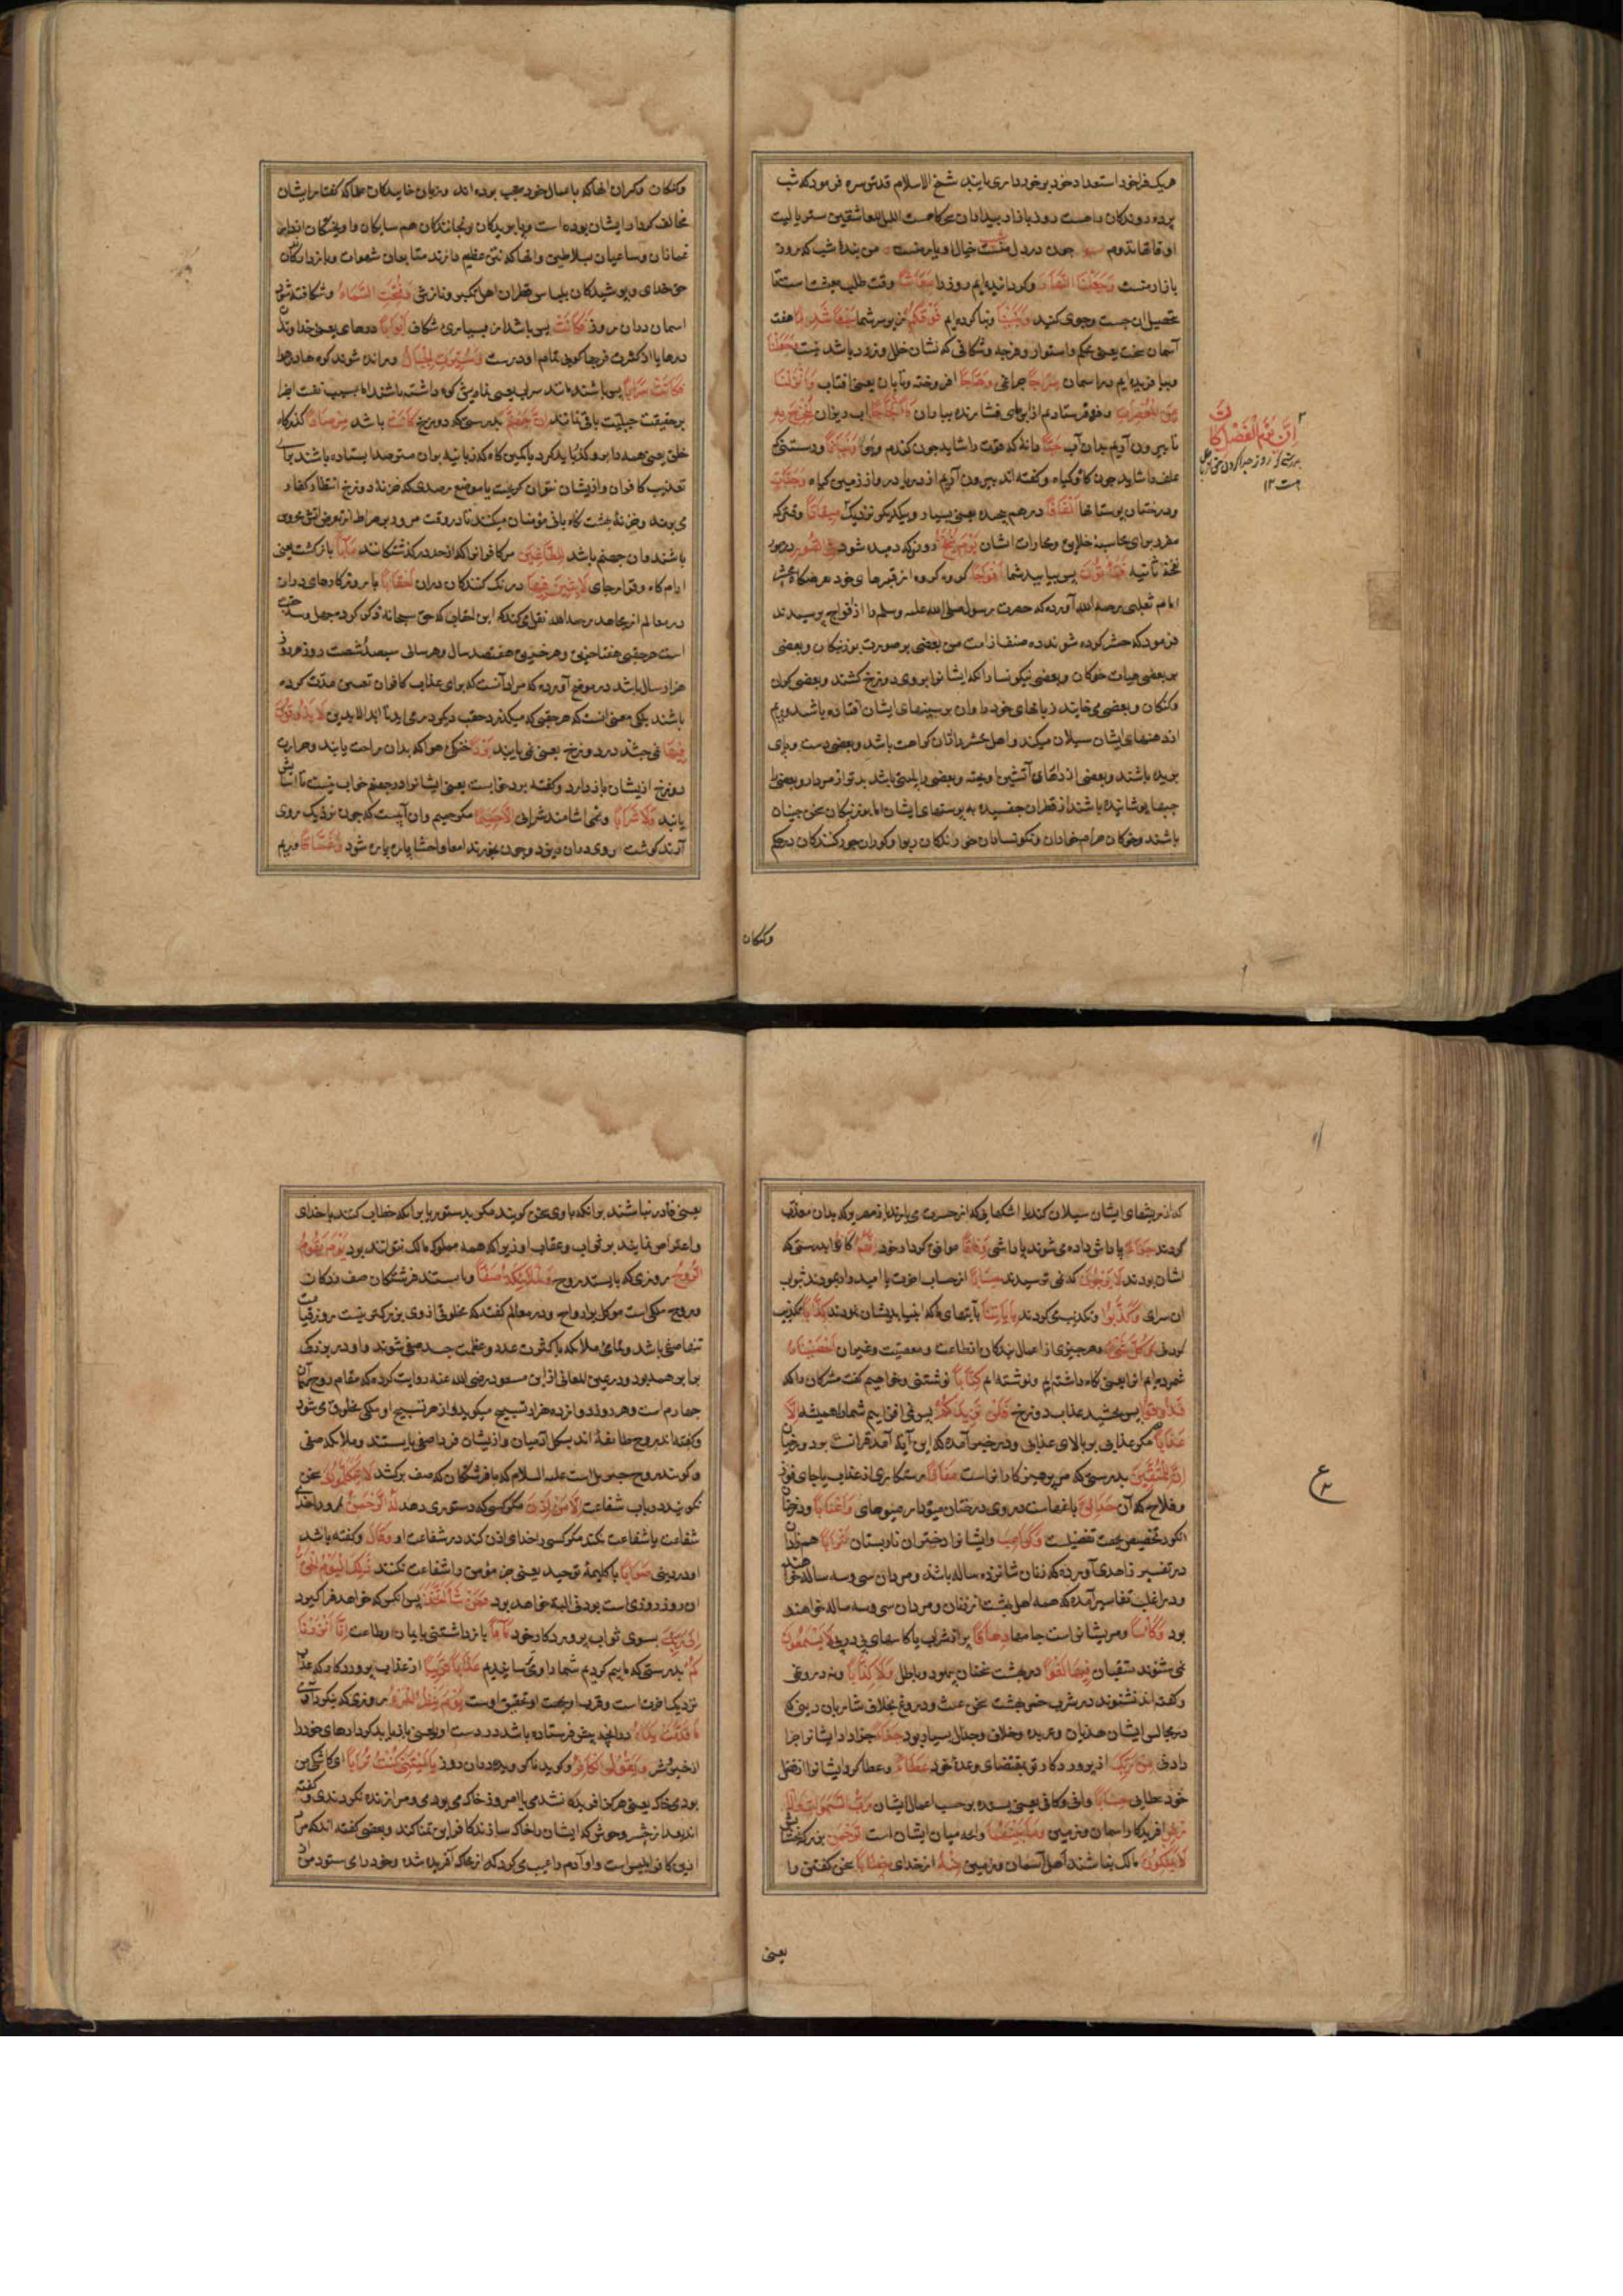 هریک فراخور استعداد خود برخورداری یابند شیخ الاسلام قدس سره فرموده که شب
پرده روندگان راهست روز بازار بیداران
اوقاتها تدوم چون در دل خیال و یار منست من بندهٔ شب که روز
بازار منست وَجَعَلْنَا النَّهَارَ وکردانیدیم روز را مَعَاشًا وقت طلب معیشت است تا
تحصیل آن جست وجوی کنید وَبَنَيْنَا وبنا کرده ایم فَوْقَكُمْ بر سر شما سَبْعًا شِدَادًا هفت
آسمان سخت یعنی محکم واستوار وفرجه وشکافی که نشان خلل ودرود باشد نیست وَجَعَلْنَا
وبیافریده ایم در آسمان سِرَاجًا چراغی وَهَّاجًا افروخته وتابان یعنی آفتاب وَأَنْزَلْنَا
مِنَ الْمُعْصِرَاتِ وفرو فرستادیم از ابرهای فشارنده بباران مَاءً ثَجَّاجًا آب ریزان لِنُخْرِجَ بِهِ
تا بیرون آریم بدان آب حَبًّا دانه که قوت را شاید چون گندم وجو وَنَبَاتًا ورستنی که
علف را شاید چون کاه وکیاه وکفته اند بیرون آریم از دریا در واز زمین کیاه وَجَنَّاتٍ
ودرختان بوستانها أَلْفَافًا درهم پیچیده یعنی بسیار ویکدیکر نزدیک مِيقَاتًا وقتی که
مقرر برای محاسبهٔ خلایق ومجازات ایشان يَوْمَ يُنْفَخُ روزی که دمیده شود فِي الصُّورِ در صور
نفخهٔ ثانیه فَتَأْتُونَ پس بیایید شما أَفْوَاجًا کروه کروه از قبرهای خود بعرضکاه محشر
امام ثعلبی رحمه الله آورده که حضرت رسول صلی الله علیه وسلم را از افواج پرسیدند
فرمود که حشر کرده شوند ده صنف از امت من بعضی بر صورت بوزنکان وبعضی
بر بعضی هیات خوکان وبعضی نکونسار که ایشانرا بر وی در دوزخ کشند وبعضی کوران
وکنکان وبعضی می خایند زبانهای خود را وان بر سینهای ایشان افتاده باشد وریم
از دهنهای ایشان سیلان میکند واهل محشر را از ان کراهت باشد وبعضی دست وپای
بریده باشند وبعضی از دارهای آتشین اویخته وبعضی را پلیتی باشد بدتر از مردار وبعضی را
جبها پوشانیده باشند از قطران چفسیده به پوستهای ایشان اما بوزنکان سخن چینان
باشند وخوکان حرام خواران ونکونساران خورندکان ربوا وکوران جور کنندکان در حکم
وکنکان
إِنَّ يَوْمَ الْفَصْلِ كَانَ
وکنکان وکران انها که باعمال خود معجب بوده اند وزبان خایندکان علما که کفتار ایشان
مخالف کردار ایشان بوده است وپا بریدکان رنجانندکان همسایکان واویختکان اندران
غمازان وساعیان بسلاطین وانها که نتن عظیم دارند متابعان شهوات وبازدارندکان
حق خدای وپوشیدکان بلباس قطران اهل تکبر ونازش وَفُتِحَتِ السَّمَاءُ وشکافته شود
اسمان دران روز فَكَانَتْ پس باشد از بسیاری شکاف أَبْوَابًا درهای یعنی خداوند
درها یا از کثرت فرجها کویی تمام او درست وَسُيِّرَتِ الْجِبَالُ ورانده شوند کوه ها در هوا
فَكَانَتْ سَرَابًا پس باشند مانند سراب یعنی
بر حقیقت جبلیت باقی نمانند إِنَّ جَهَنَّمَ بدرستی که دوزخ كَانَتْ باشد مِرْصَادًا کذرکاه
خلق یعنی همه را برو کذر باید کرد یا کمین کاه که زبانیه بران مترصد ایستاده باشند برای
تعذیب کافران وازیشان نتوان کریخت یا موضع رصدی که خزنهٔ دوزخ انتظار کفار
می برند وخزنهٔ بهشت نکاه بانی مؤمنان میکنند تا در وقت مرور بر صراط از تعرض آتش محروس
باشند وان جهنم باشد لِلطَّاغِينَ مر کافرانرا که از حد در گذشتکانند مَآبًا بازکشت یعنی
آرام کاه وقرار جای لَابِثِينَ فِيهَا درنک کنندکان دران أَحْقَابًا
در معالم از مجاهد رحمه الله نقل میکند که این احقاب که حق سبحانه ذکر کرده چهل وسه حقب
است هر حقبی هفتاد خریف وهر خریفی هفتصد سال وهر سالی سیصد وشصت روز وهر روز
هزار سال باشد در موضح آورده که مراد آنست که برای عذاب کافران تعیین مدت کرده
باشند بلکه معنی انست که هر حقبی که میکذرد حقب دیکر در می اید تا ابد الابدین لَا يَذُوقُونَ
فِيهَا نمی چشند در دوزخ یعنی نمی یابند بَرْدًا خنکی هوا که بدان راحت یابند وحرارت
دوزخ ازیشان باز دارد وکفته برد خوابست یعنی ایشانرا در جهنم خواب نیست تا اسایش
یابند وَلَا شَرَابًا ونمی اشامند شرابی إِلَّا حَمِيمًا مکر حمیم وان آبیست که چون نزدیک روی
آرند کوشت روی دران ریزد وچون بخورند امعا واحشا پاره پاره شود وَغَسَّاقًا وریم
که از ریشهای ایشان سیلان کند یا اشکهایی که از حسرت می بارند یا زمهریر که بدان معذب
کردند جَزَاءً پاداش داده می شوند پاداشی وِفَاقًا موافق کردار خود إِنَّهُمْ كَانُوا بدرستی که
ایشان بودند لَا يَرْجُونَ که نمی ترسیدند حِسَابًا از حساب اخرت یا امیدوار نبودند ثواب
ان سرای وَكَذَّبُوا وتکذیب می کردند بِآيَاتِنَا بآیتهای ما که انبیا بدیشان نمودند كِذَّابًا تکذیب
کردنی وَكُلَّ شَيْءٍ وهر چیزی از اعمال بندکان از طاعت ومعصیت وغیر ان أَحْصَيْنَاهُ
شمرده ایم انرا یعنی نکاه داشته ایم ونوشته ایم كِتَابًا نوشتنی وخواهیم کفت مشرکان را که
فَذُوقُوا پس بچشید عذاب دوزخ فَلَنْ نَزِيدَكُمْ پس نمی افزاییم شمارا همیشه إِلَّا
عَذَابًا مکر عذابی بر بالای عذابی ودر خبر آمده که این آیة آمد قرانست بود
إِنَّ لِلْمُتَّقِينَ بدرستی که مر پرهیزکارانراست مَفَازًا رستکاری از عذاب یا جای فوز
وفلاح که آن حَدَائِقَ باغهاست در وی درختان میوه دار میوهای وَأَعْنَابًا ودرختان
انکور تخصیص بجهت تفضیلست وَكَوَاعِبَ وایشانرا دختران ناربستان أَتْرَابًا همزاد
در تفسیر زاهدی آورده که زنان شانزده ساله باشند ومردان سی وسه ساله
ودر اغلب تفاسیر آمده که همه اهل بهشت از زنان ومردان سی وسه ساله خواهند
بود وَكَأْسًا ومریشانراست جامها دِهَاقًا پر از شراب یا کاسهای پی در پی لَا يَسْمَعُونَ
نمی شنوند متقیان فِيهَا لَغْوًا در بهشت سخنان بیهوده وباطل وَلَا كِذَّابًا ونه دروغی
وکفته اند نشنوند در شرب خمر بهشت سخن عبث ودروغ بخلاف شاربان دنیی که
در مجالس ایشان هذیان وعربده وخلاف وجدال بسیار بود جَزَاءً جزا داد ایشانرا جزا
دادنی مِنْ رَبِّكَ از پروردکار تو بمقتضای وعدهٔ خود عَطَاءً وعطا کرد ایشانرا از فضل
خود عطایی حِسَابًا وافی وکافی یعنی بسنده بر حسب اعمال ایشان رَبِّ السَّمَوَاتِ وَالْأَرْضِ
آفریدکار اسمان وزمین وَمَا بَيْنَهُمَا وانچه میان ایشان است الرَّحْمَنِ بزرک بخشایش
لَا يَمْلِكُونَ مالک نباشند اهل آسمان وزمین مِنْهُ از خدای خِطَابًا سخن کفتن را
یعنی
ع
یعنی قادر نباشند برانکه با وی سخن کویند مکر بدستوری یا برانکه خطاب کنند با خدای
واعتراض نمایند بر ثواب وعقاب او زیرا که همه مملوک مالک نتوانند بود يَوْمَ يَقُومُ
الرُّوحُ روزی که بایستد روح وَالْمَلَائِكَةُ صَفًّا وبایستند فرشتکان صف زدکان
وروح ملکی است موکل بر ارواح ودر معالم کفته که مخلوقی از وی بزرکتر نیست روز قیامت
تنها صفی باشد وتمامی ملائکه با کثرت عدد وعظمت جسد صفی شوند واو در بزرکی
برابر همه بود ودر عین المعانی از ابن مسعود رضی الله عنه روایت کرده که مقام روح آسمان
چهارم است وهر روز دوازده هزار تسبیح میکوید واز هر تسبیح او ملکی مخلوق می شود
وکفته اند روح طایفهٔ اند بشکل آدمیان وازیشان فردا صفی بایستند وملائکه صفی
وکویند روح جبرئیل است علیه السلام که با فرشتکان که صف برکشد لَا يَتَكَلَّمُونَ سخن
نکویند در باب شفاعت إِلَّا مَنْ أَذِنَ مکر کسی که دستوری دهد لَهُ الرَّحْمَنُ مرورا خدای
شفاعت یا شفاعت نکند مکر کسی را خدای اذن کند در شفاعت او وَقَالَ وکفته باشد
او در دنیی صَوَابًا یا کلمهٔ توحید یعنی جز مؤمن را شفاعت نکنند ذَلِكَ الْيَوْمُ الْحَقُّ
ان روز روزی است بودنی البته خواهد بود فَمَنْ شَاءَ اتَّخَذَ پس انکس که خواهد فراکیرد
إِلَى رَبِّهِ بسوی ثواب پروردکار خود مَآبًا بازکشتنی بایمان وطاعت إِنَّا أَنْذَرْنَا
كُمْ بدرستی که ما بیم کردیم شمارا وترسانیدیم عَذَابًا قَرِيبًا از عذاب پروردکار که عذاب
نزدیک آخرتست وقرب او بجهت تحقیق اوست يَوْمَ يَنْظُرُ الْمَرْءُ روزی که بنکرد آدمی
مَا قَدَّمَتْ يَدَاهُ درانچه پیش فرستاده باشد دو دست او یعنی بازیابد کردارهای خود را
از خیر وشر وَيَقُولُ الْكَافِرُ وکوید ناکرویده دران روز يَا لَيْتَنِي كُنْتُ تُرَابًا ای کاشکی من
بودمی خاک یعنی هرکز آفریده نشدمی یا امروز خاک می بودمی ومرا زنده نکردندی وکفته
اند بعد از حشر وحوش که ایشانرا خاک سازند کافر این تمنا کند وبعضی کفته اند که مراد
ازین کافر ابلیس است واو آدم را عیب می کرد که از خاک آفریده شده وخود را می ستود من از